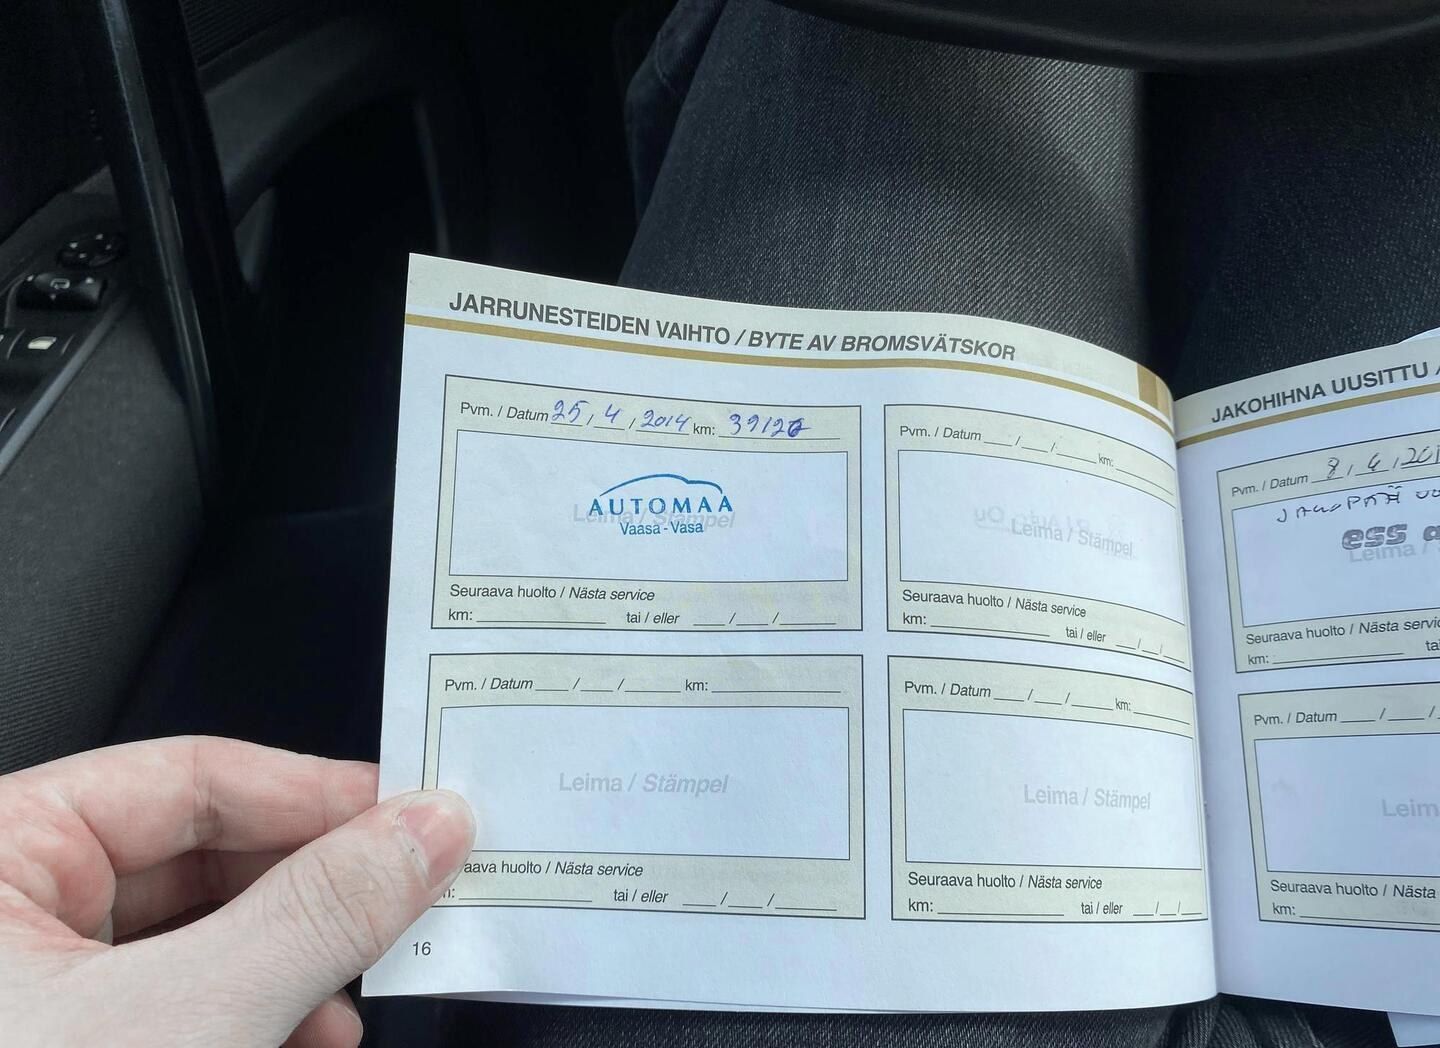 JARRUNESTEIDEN VAIHTO / BYTE AV BROMSVÄTSKOR
Pvm. / Datum 25 / 4 / 2014 km: 39126
AUTOMAA
Leima / Stämpel
Vaasa - Vasa
Seuraava huolto / Nästa service
km: tai / eller / /
Pvm. / Datum / / km:
Leima / Stämpel
Seuraava huolto / Nästa service
km: tai / eller / /
Pvm. / Datum / / km:
Leima / Stämpel
aava huolto / Nästa service
: tai / eller / /
Pvm. / Datum / / km:
Leima / Stämpel
Seuraava huolto / Nästa service
km: tai / eller / /
16
JAKOHIHNA UUSITTU /
Pvm. / Datum 8 / 4 / 201
ess a
Leima /
Seuraava huolto / Nästa servic
km: tai
Pvm. / Datum / /
Leim
Seuraava huolto / Nästa
km: